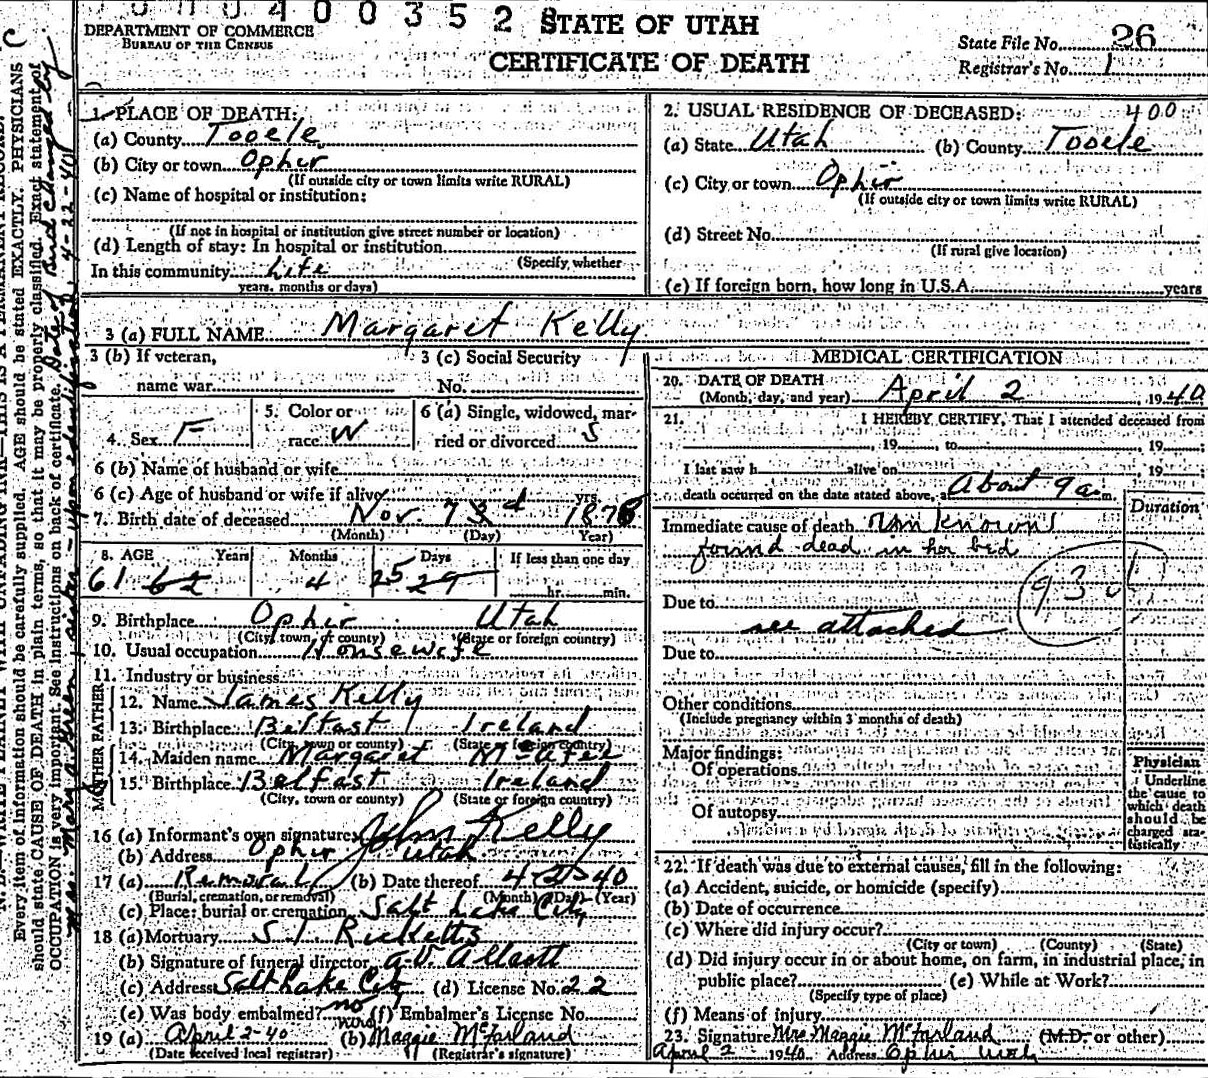 00040035 2
STATE OF UTAH
CERTIFICATE OF DEATH
DEPARTMENT OF COMMERCE
BUREAU OF THE CENSUS
State File No. 26
Registrar's No. 1
1. PLACE OF DEATH:
(a) County Tooele
(b) City or town Ophir
(If outside city or town limits write RURAL)
(c) Name of hospital or institution:
(If not in hospital or institution give street number or location)
(d) Length of stay: In hospital or institution
(Specify whether
In this community Life
years, months or days)
2. USUAL RESIDENCE OF DECEASED: 400
(a) State Utah (b) County Tooele
(c) City or town Ophir
(If outside city or town limits write RURAL)
(d) Street No.
(If rural give location)
(e) If foreign born, how long in U.S.A. years
3 (a) FULL NAME Margaret Kelly
3 (b) If veteran,
name war
3 (c) Social Security
No.
4. Sex F
5. Color or
race W
6 (a) Single, widowed, mar-
ried or divorced S
6 (b) Name of husband or wife
6 (c) Age of husband or wife if alive yrs.
7. Birth date of deceased Nov. 7 3d 1878
(Month) (Day) (Year)
8. AGE Years Months Days If less than one day
61 62 4 25 29 hr. min.
9. Birthplace Ophir Utah
(City, town, or county) (State or foreign country)
10. Usual occupation Housewife
11. Industry or business
FATHER
12. Name James Kelly
13. Birthplace Belfast Ireland
(City, town or county) (State or foreign country)
MOTHER
14. Maiden name Margaret McAfee
15. Birthplace Belfast Ireland
(City, town or county) (State or foreign country)
16 (a) Informant's own signature John Kelly
(b) Address Ophir Utah
17 (a) Removal (b) Date thereof 4-2-40
(Burial, cremation, or removal) (Month) (Day) (Year)
(c) Place: burial or cremation Salt Lake City
18 (a) Mortuary S. T. Ricketts
(b) Signature of funeral director A. V. Allcott
(c) Address Salt Lake City (d) License No. 22
(e) Was body embalmed? no (f) Embalmer's License No.
19 (a) April 2-40 (b) Mrs Maggie McFarland
(Date received local registrar) (Registrar's signature)
MEDICAL CERTIFICATION
20. DATE OF DEATH
(Month, day, and year) April 2 1940
21. I HEREBY CERTIFY, That I attended deceased from
, 19 to , 19
I last saw h alive on , 19
death occurred on the date stated above, at About 9 a.m.
Duration
Immediate cause of death unknown
found dead in her bed
930
Due to
see attached
Due to
Other conditions
(Include pregnancy within 3 months of death)
Major findings:
Of operations
Of autopsy
Physician
Underline
the cause to
which death
should be
charged sta-
tistically
22. If death was due to external causes, fill in the following:
(a) Accident, suicide, or homicide (specify)
(b) Date of occurrence
(c) Where did injury occur?
(City or town) (County) (State)
(d) Did injury occur in or about home, on farm, in industrial place, in
public place? (e) While at Work?
(Specify type of place)
(f) Means of injury
23. Signature Mrs Maggie McFarland (M.D. or other)
April 2 1940 Address Ophir Utah
N.B.—WRITE PLAINLY WITH UNFADING INK—THIS IS A PERMANENT RECORD.
Every item of information should be carefully supplied. AGE should be stated EXACTLY. PHYSICIANS
should state CAUSE OF DEATH in plain terms, so that it may be properly classified. Exact statement of
OCCUPATION is very important. See instructions on back of certificate. Date of Birth changed by
Mrs. Mary A. Green sister - upon 4-22-40